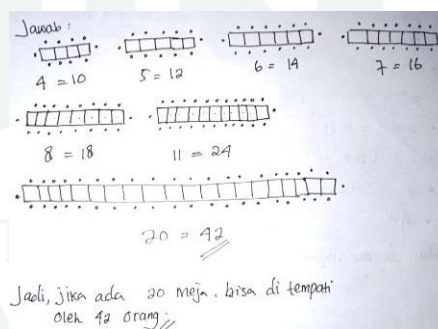 Jawab :
4 = 10
5 = 12
6 = 14
7 = 16
8 = 18
11 = 24
20 = 42
Jadi, jika ada 20 meja. bisa di tempati
oleh 42 orang.